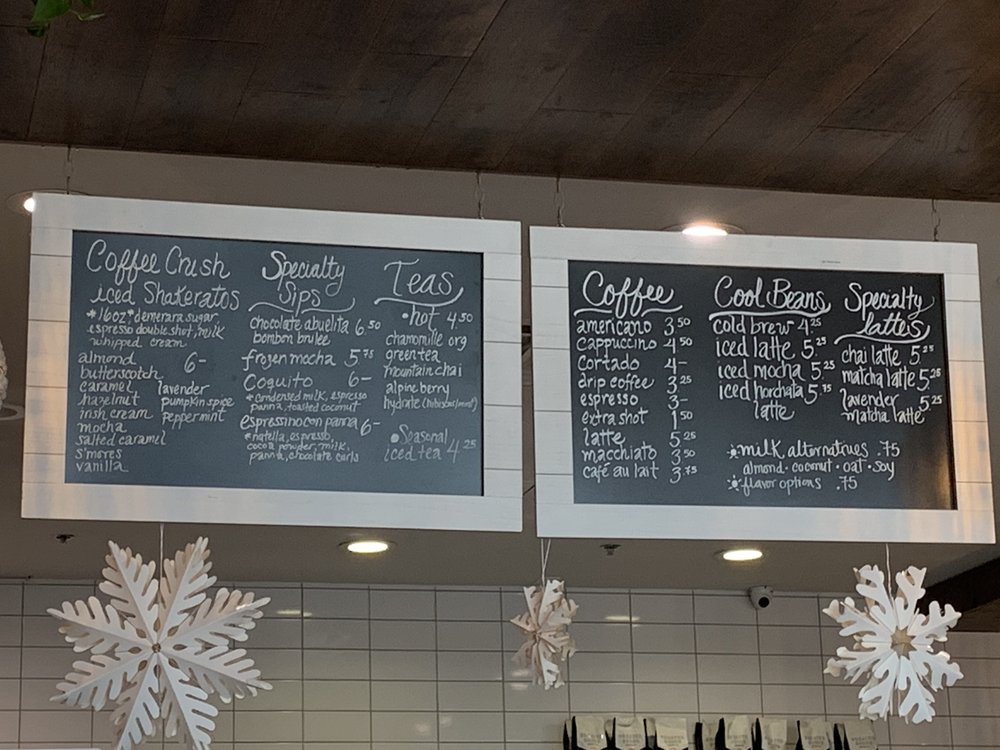 Coffee Crush
iced Shakeratos
*16oz* demerara sugar
espresso double shot, milk
whipped cream
6-
almond
butterscotch
caramel
hazelnut
irish cream
mocha
salted caramel
s'mores
vanilla
lavender
pumpkin spice
peppermint
Specialty
Sips
chocolate abuelita 6.50
bombon brulee
frozen mocha 5.75
Coquito 6-
*condensed milk, espresso
panna, toasted coconut
espresso con panna 6-
*nutella, espresso,
cocoa powder, milk,
panna, chocolate curls
Teas
• hot 4.50
chamomille org
green tea
mountain chai
alpine berry
hydrate (hibiscus/mint)
• Seasonal
iced tea 4.25
Coffee
americano 3.50
cappuccino 4.50
cortado 4-
drip coffee 3.25
espresso 3-
extra shot 1.50
latte 5.25
macchiato 3.50
café au lait 3.75
Cool Beans
cold brew 4.25
iced latte 5.25
iced mocha 5.75
iced horchata 5.75
latte
Specialty
lattes
chai latte 5.25
matcha latte 5.25
lavender 5.25
matcha latte
* milk alternatives .75
almond • coconut • oat • soy
* flavor options .75